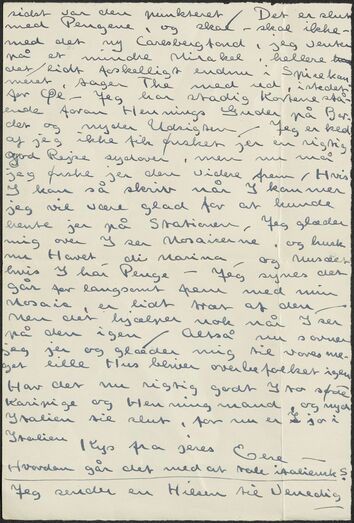 sidst var den punkteret / Det er slut
med Pengene, og skal - skal ikke -
med det ny Carlsbergfond, jeg venter
på et mindre Mirakel, hellere
det lidt forskelligt endnu i Spisekam
meret, tager The med ud, istedet
for Øl - Jeg har stadig Kortene stå-
ende foran Hennings Guder på Bor-
det og nyder Udsigten - Jeg er ked
af jeg ikke fik ønsket jer en rigtig
god Rejse sydover, men nu må
jeg ønske jer den videre frem / Hvis
I kan så skriv når I kommer
jeg vil være glad for at kunde
hente jer på Stationen / Jeg glæder
mig over I ser Mosaikerne, og husk
nu Havet, di marina, og Museet
hvis I har Penge - Jeg synes det
går for langsomt frem med min
Mosaik, er lidt træt af den -
Men det hjælper nok når I ser
på den igen / Altså nu savner
jeg jer og glæder mig til vores me-
get lille Hus bliver overbefolket igen
Hav det nu rigtig godt I to søde
Karipige og Henningmand, og nyd
Italien til slut, for nu er I jo i
Italien
Kys fra jeres Eere -
Hvordan går det med at tale italiensk?
Jeg sender en Hilsen til Venedig -